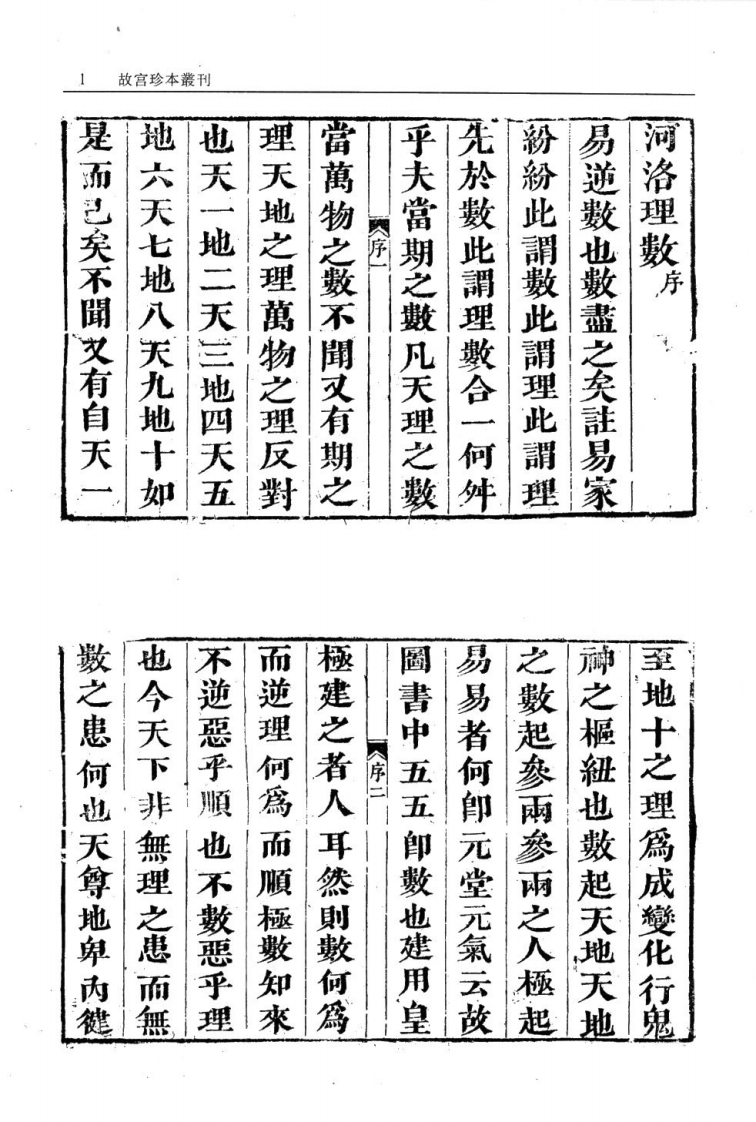 1 故宮珍本叢刊
河洛理數序
易逆數也數盡之矣註易家
紛紛此謂數此謂理此謂理
先於數此謂理數合一何舛
乎夫當期之數凡天理之數
序一
當萬物之數不聞又有期之
理天地之理萬物之理反對
也天一地二天三地四天五
地六天七地八天九地十如
是而已矣不聞又有自天一
至地十之理爲成變化行鬼
神之樞紐也數起天地天地
之數起參兩參兩之人極起
易易者何卽元堂元氣云故
圖書中五五卽數也建用皇
序二
極建之者人耳然則數何爲
而逆理何爲而順極數知來
不逆惡乎順也不數惡乎理
也今天下非無理之患而無
數之患何也天尊地卑內健